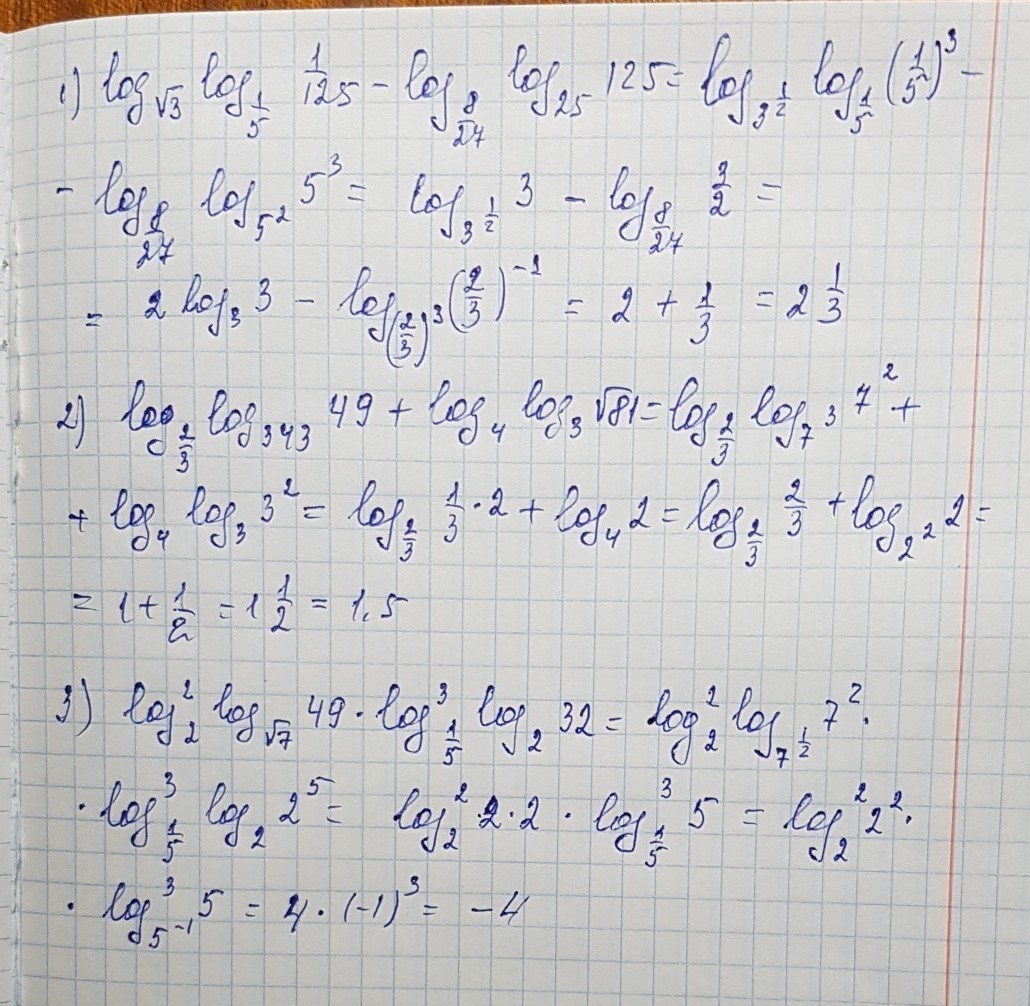 1) log_√3 log_{1/5} 1/125 - log_{8/27} log_25 125 = log_{3^{1/2}} log_{1/5} (1/5)^3 -
- log_{8/27} log_{5^2} 5^3 = log_{3^{1/2}} 3 - log_{8/27} 3/2 =
= 2 log_3 3 - log_{(2/3)^3} (2/3)^{-1} = 2 + 1/3 = 2 1/3
2) log_{2/3} log_343 49 + log_4 log_3 √81 = log_{2/3} log_{7^3} 7^2 +
+ log_4 log_3 3^2 = log_{2/3} 1/3 · 2 + log_4 2 = log_{2/3} 2/3 + log_{2^2} 2 =
= 1 + 1/2 = 1 1/2 = 1.5
3) log_2^2 log_√7 49 · log_{1/5}^3 log_2 32 = log_2^2 log_{7^{1/2}} 7^2 ·
· log_{1/5}^3 log_2 2^5 = log_2^2 2 · 2 · log_{1/5}^3 5 = log_2^2 2^2 ·
· log_{5^{-1}}^3 5 = 4 · (-1)^3 = -4